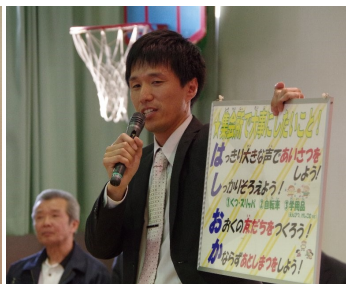 で大事にしたいこと!
はっきり大きな声であいさつを
しよう!
しっかりそろえよう!
①くつ・スリッパ ②自転車 ③学用品
おおくの友だちをつくろう!
かならずあとしまつをしよう!